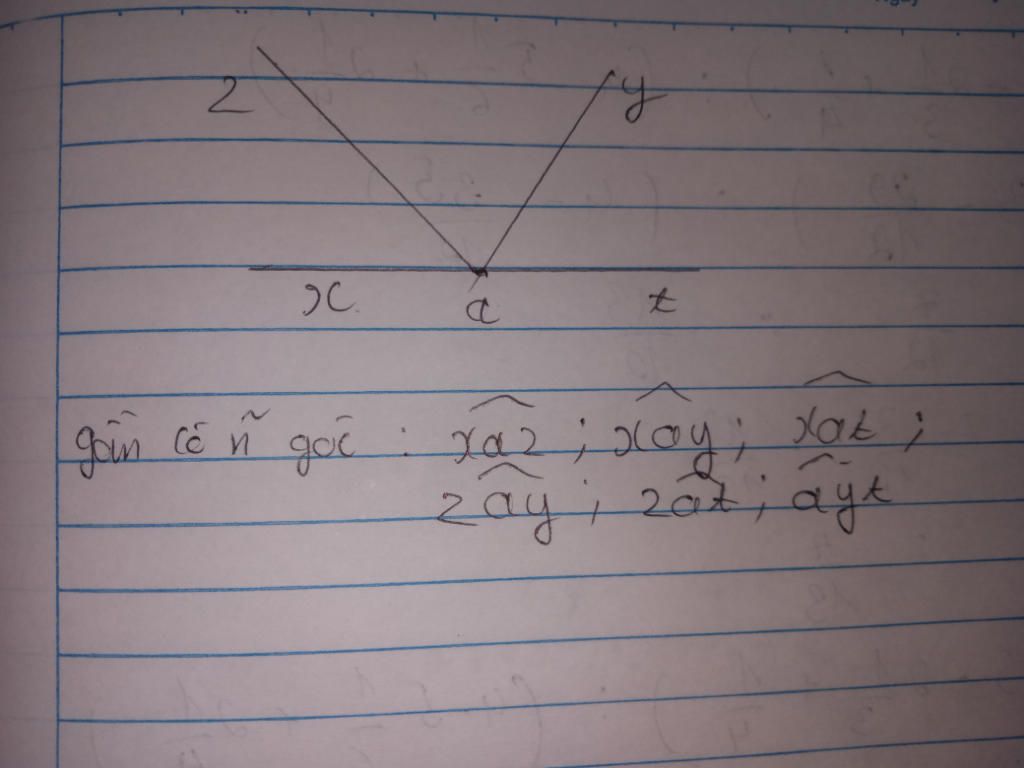 z y
x a t
gồm có ñ góc : xaz ; xay ; xat ;
zay ; zat ; ayt